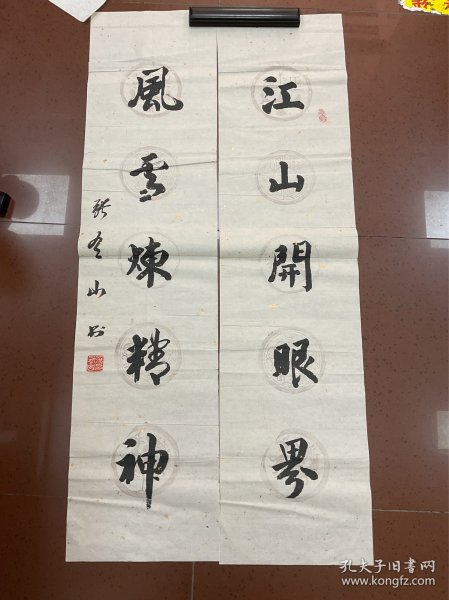 江山開眼界
風雪煉精神
孔夫子旧书网
www.kongfz.com